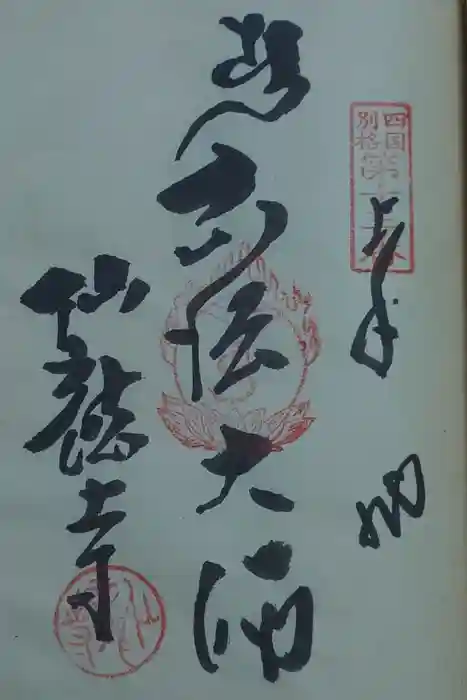 四国
別格
第十三番
奉納
弘法大師
仙龍寺